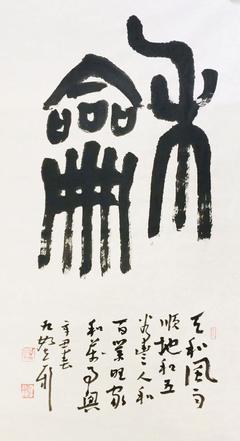 龢
天和風雨
順地和五
谷豐人和
百業旺家
和萬事興
辛丑